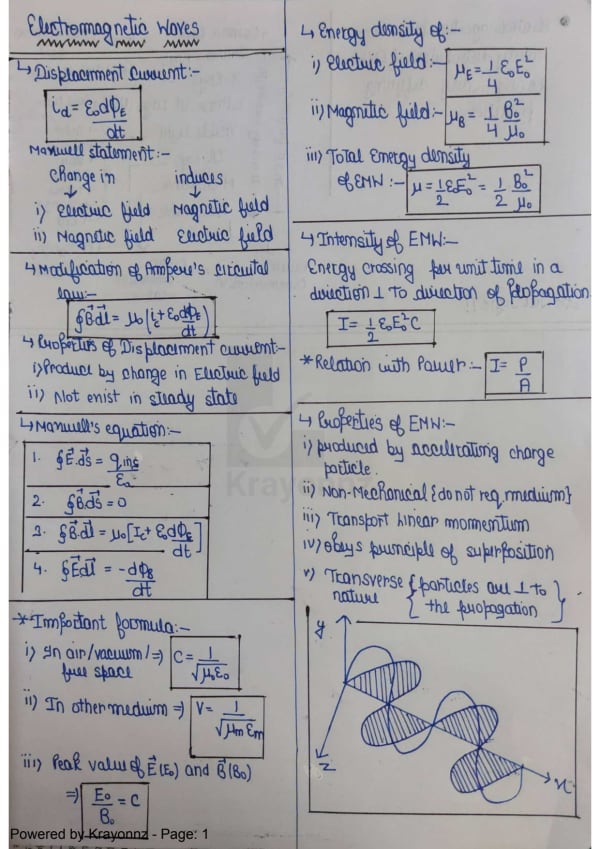 Electromagnetic Waves
↳ Displacement current:-
i_d = ε₀dΦ_E/dt
Maxwell statement:-
change in induces
↓ ↓
i) Electric field Magnetic field
ii) Magnetic field Electric field
↳ Modification of Ampere's circuital
law:-
∮B⃗.dl⃗ = μ₀(i_c + ε₀dΦ_E/dt)
↳ Properties of Displacement current-
i) Produce by change in Electric field
ii) Not exist in steady state
↳ Maxwell's equation:-
1. ∮E⃗.ds⃗ = q_ins/ε₀
2. ∮B⃗.ds⃗ = 0
3. ∮B⃗.dl⃗ = μ₀[I_c + ε₀dΦ_E/dt]
4. ∮E⃗dl⃗ = -dΦ_B/dt
* Important formula:-
i) In air/vacuum/ ⇒ C = 1/√μ₀ε₀
free space
ii) In other medium ⇒ V = 1/√μm εm
iii) Peak value of E⃗(E₀) and B⃗(B₀)
⇒ E₀/B₀ = C
↳ Energy density of:-
i) Electric field:- μ_E = 1/4 ε₀E₀²
ii) Magnetic field:- μ_B = 1/4 B₀²/μ₀
iii) Total Energy density
of EMW:- μ = 1/2 ε₀E₀² = 1/2 B₀²/μ₀
↳ Intensity of EMW:-
Energy crossing per unit time in a
direction ⊥ to direction of propagation
I = 1/2 ε₀E₀²C
* Relation with Power:- I = P/A
↳ Properties of EMW:-
i) produced by accelerating charge
particle.
ii) Non-Mechanical {do not req. medium}
iii) Transport linear momentum
iv) obeys principle of superposition
v) Transverse {particles are ⊥ to
nature the propagation}
y
z
x
Krayonnz
Powered by Krayonnz - Page: 1